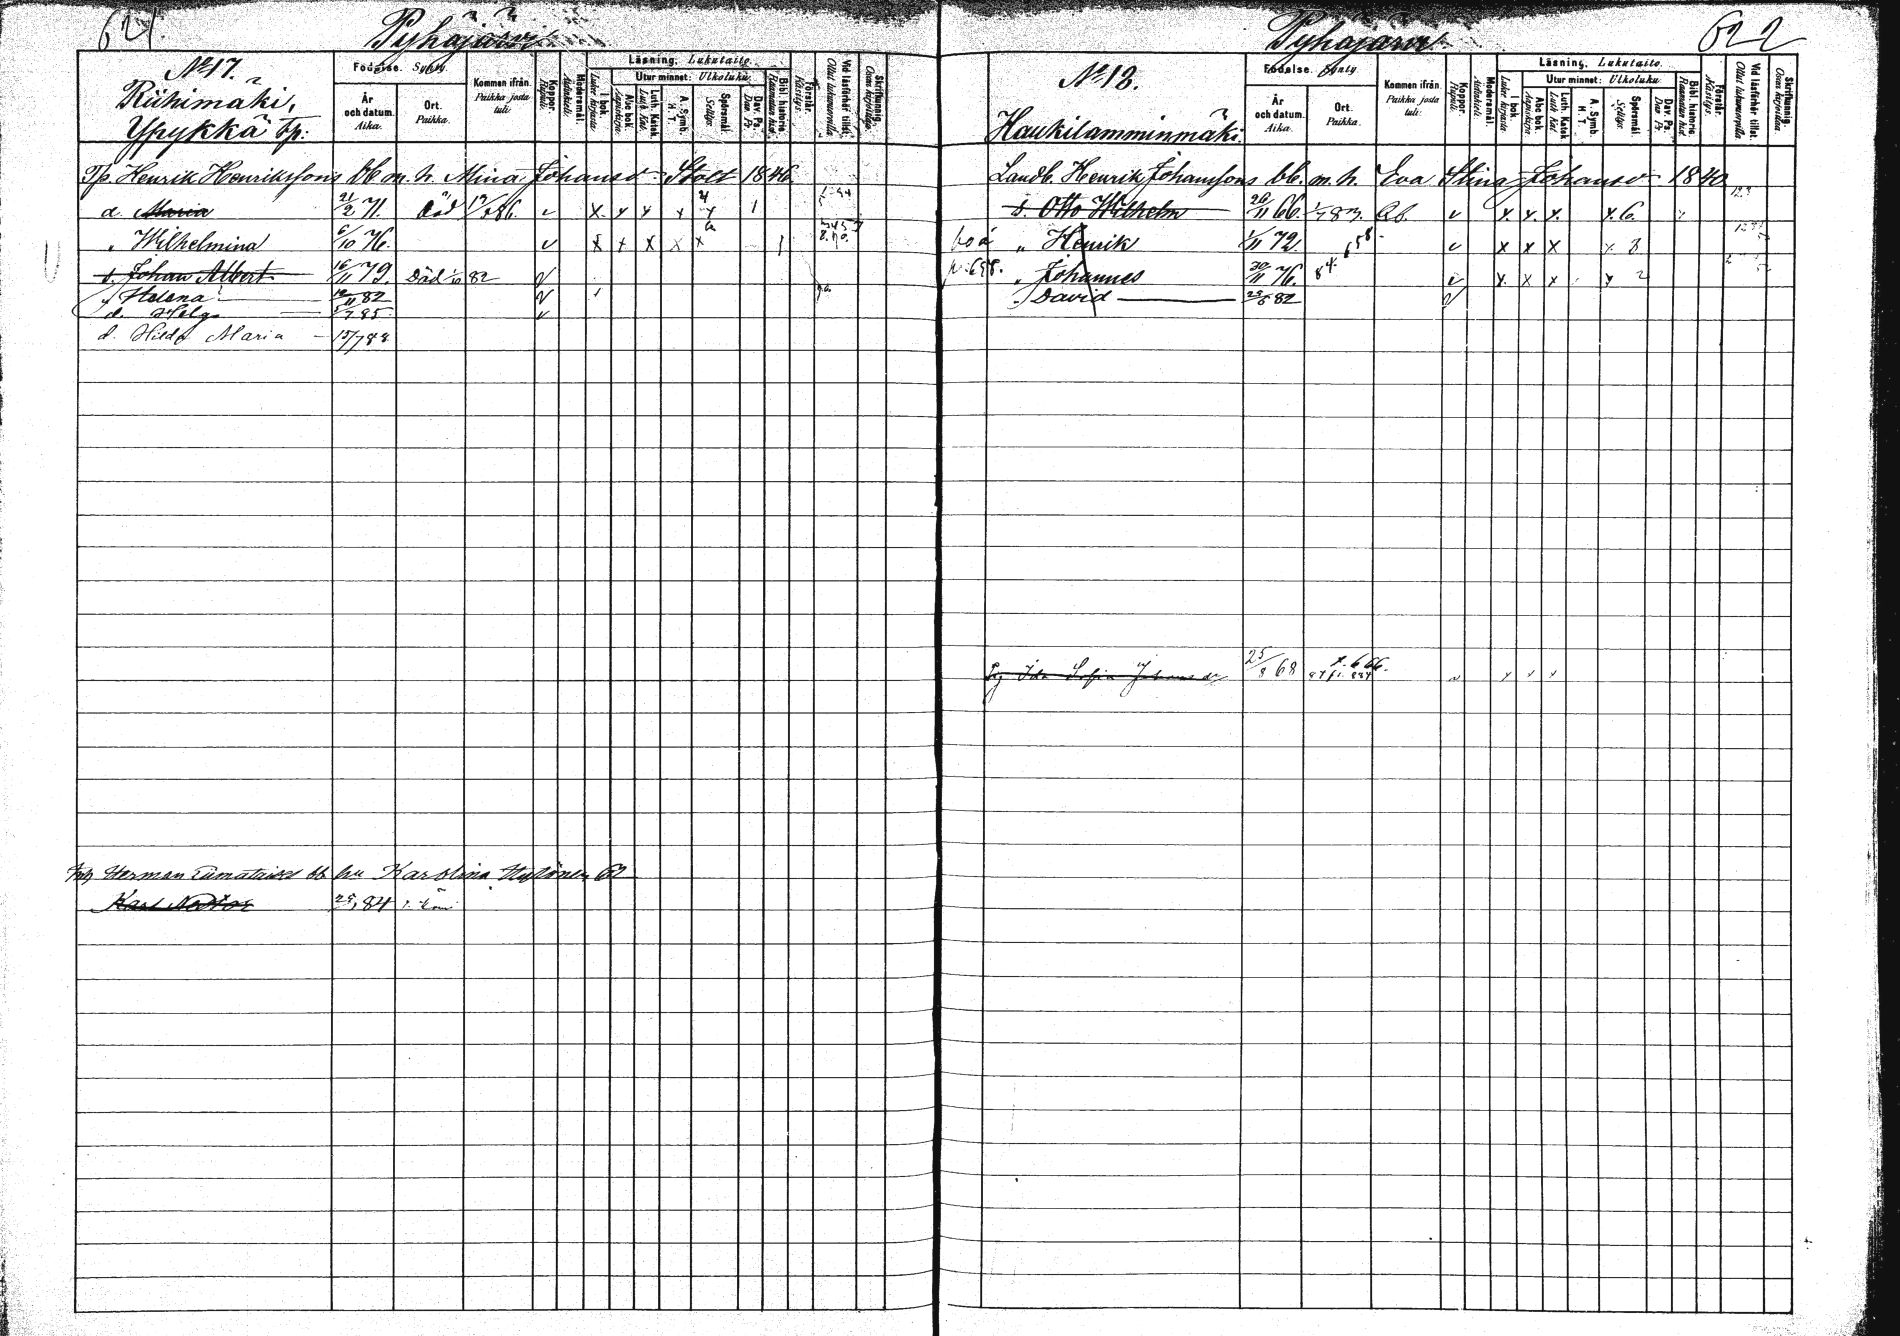 621.
Pyhäjärvi
No 17.
Riihimäki,
Ypykkä Tp:
Födelse. Synty.
År och datum. Aika.
Ort. Paikka.
Kommen ifrån. Paikka josta tuli.
Koppor. Rupuli.
Modersmål. Äidinkieli.
Läsning. Lukutaito.
I bok. Lukee kirjasta
Utur minnet: Ulkoluku.
Aba bok. Aapiskirja
Luth. Katek. Luth. Kat.
A. Symb. H. T.
Spörsmål. Selitys.
Dav. Ps. Dav. Ps.
Bibl. historia. Raamatun hist.
Förstår. Käsitys.
Vid läsförhör tillst. Ollut lukuvuorolla
Skriftkunnig. Osaa kirjoittaa
Tp. Henrik Henriksons bb m. h. Mina Johansd. Stolt 1846.
d. Maria 21/2 71. Död 86. v x x x x 1
" Wilhelmina 6/10 76. v x x x x x 1
s. Johan Albert 16/11 79. Död 82 v
" Helena 82 v
d. Helga 85 v
d. Hilda Maria 15/7 88
Herman bb hu Karolina Hytönen 62
Karl Nestor 84
622
Pyhäjärvi
No 18.
Haukilamminmäki.
Födelse. Synty
År och datum. Aika.
Ort. Paikka.
Kommen ifrån. Paikka josta tuli.
Koppor. Rupuli.
Modersmål. Äidinkieli.
Läsning. Lukutaito.
I bok. Lukee kirjasta
Utur minnet: Ulkoluku.
Aba bok. Aapiskirja
Luth. Katek. Luth. Kat.
A. Symb. H. T.
Spörsmål. Selitys.
Dav. Ps. Dav. Ps.
Bibl. historia. Raamatun hist.
Förstår. Käsitys.
Vid läsförhör tillst. Ollut lukuvuorolla
Skriftkunnig. Osaa kirjoittaa
Landb. Henrik Johanssons bb. m. h. Eva Stina Johansd. 1840
s. Otto Wilhelm 26/11 66. v x. x. x. x. 6.
bo å " Henrik 1/11 72. v x x x x 3
p. 698. " Johannes 30/11 76. v x. x x x 2
" David 82 v
Ida Sofia Johansdr 25/8 68 p. 666. v x x x